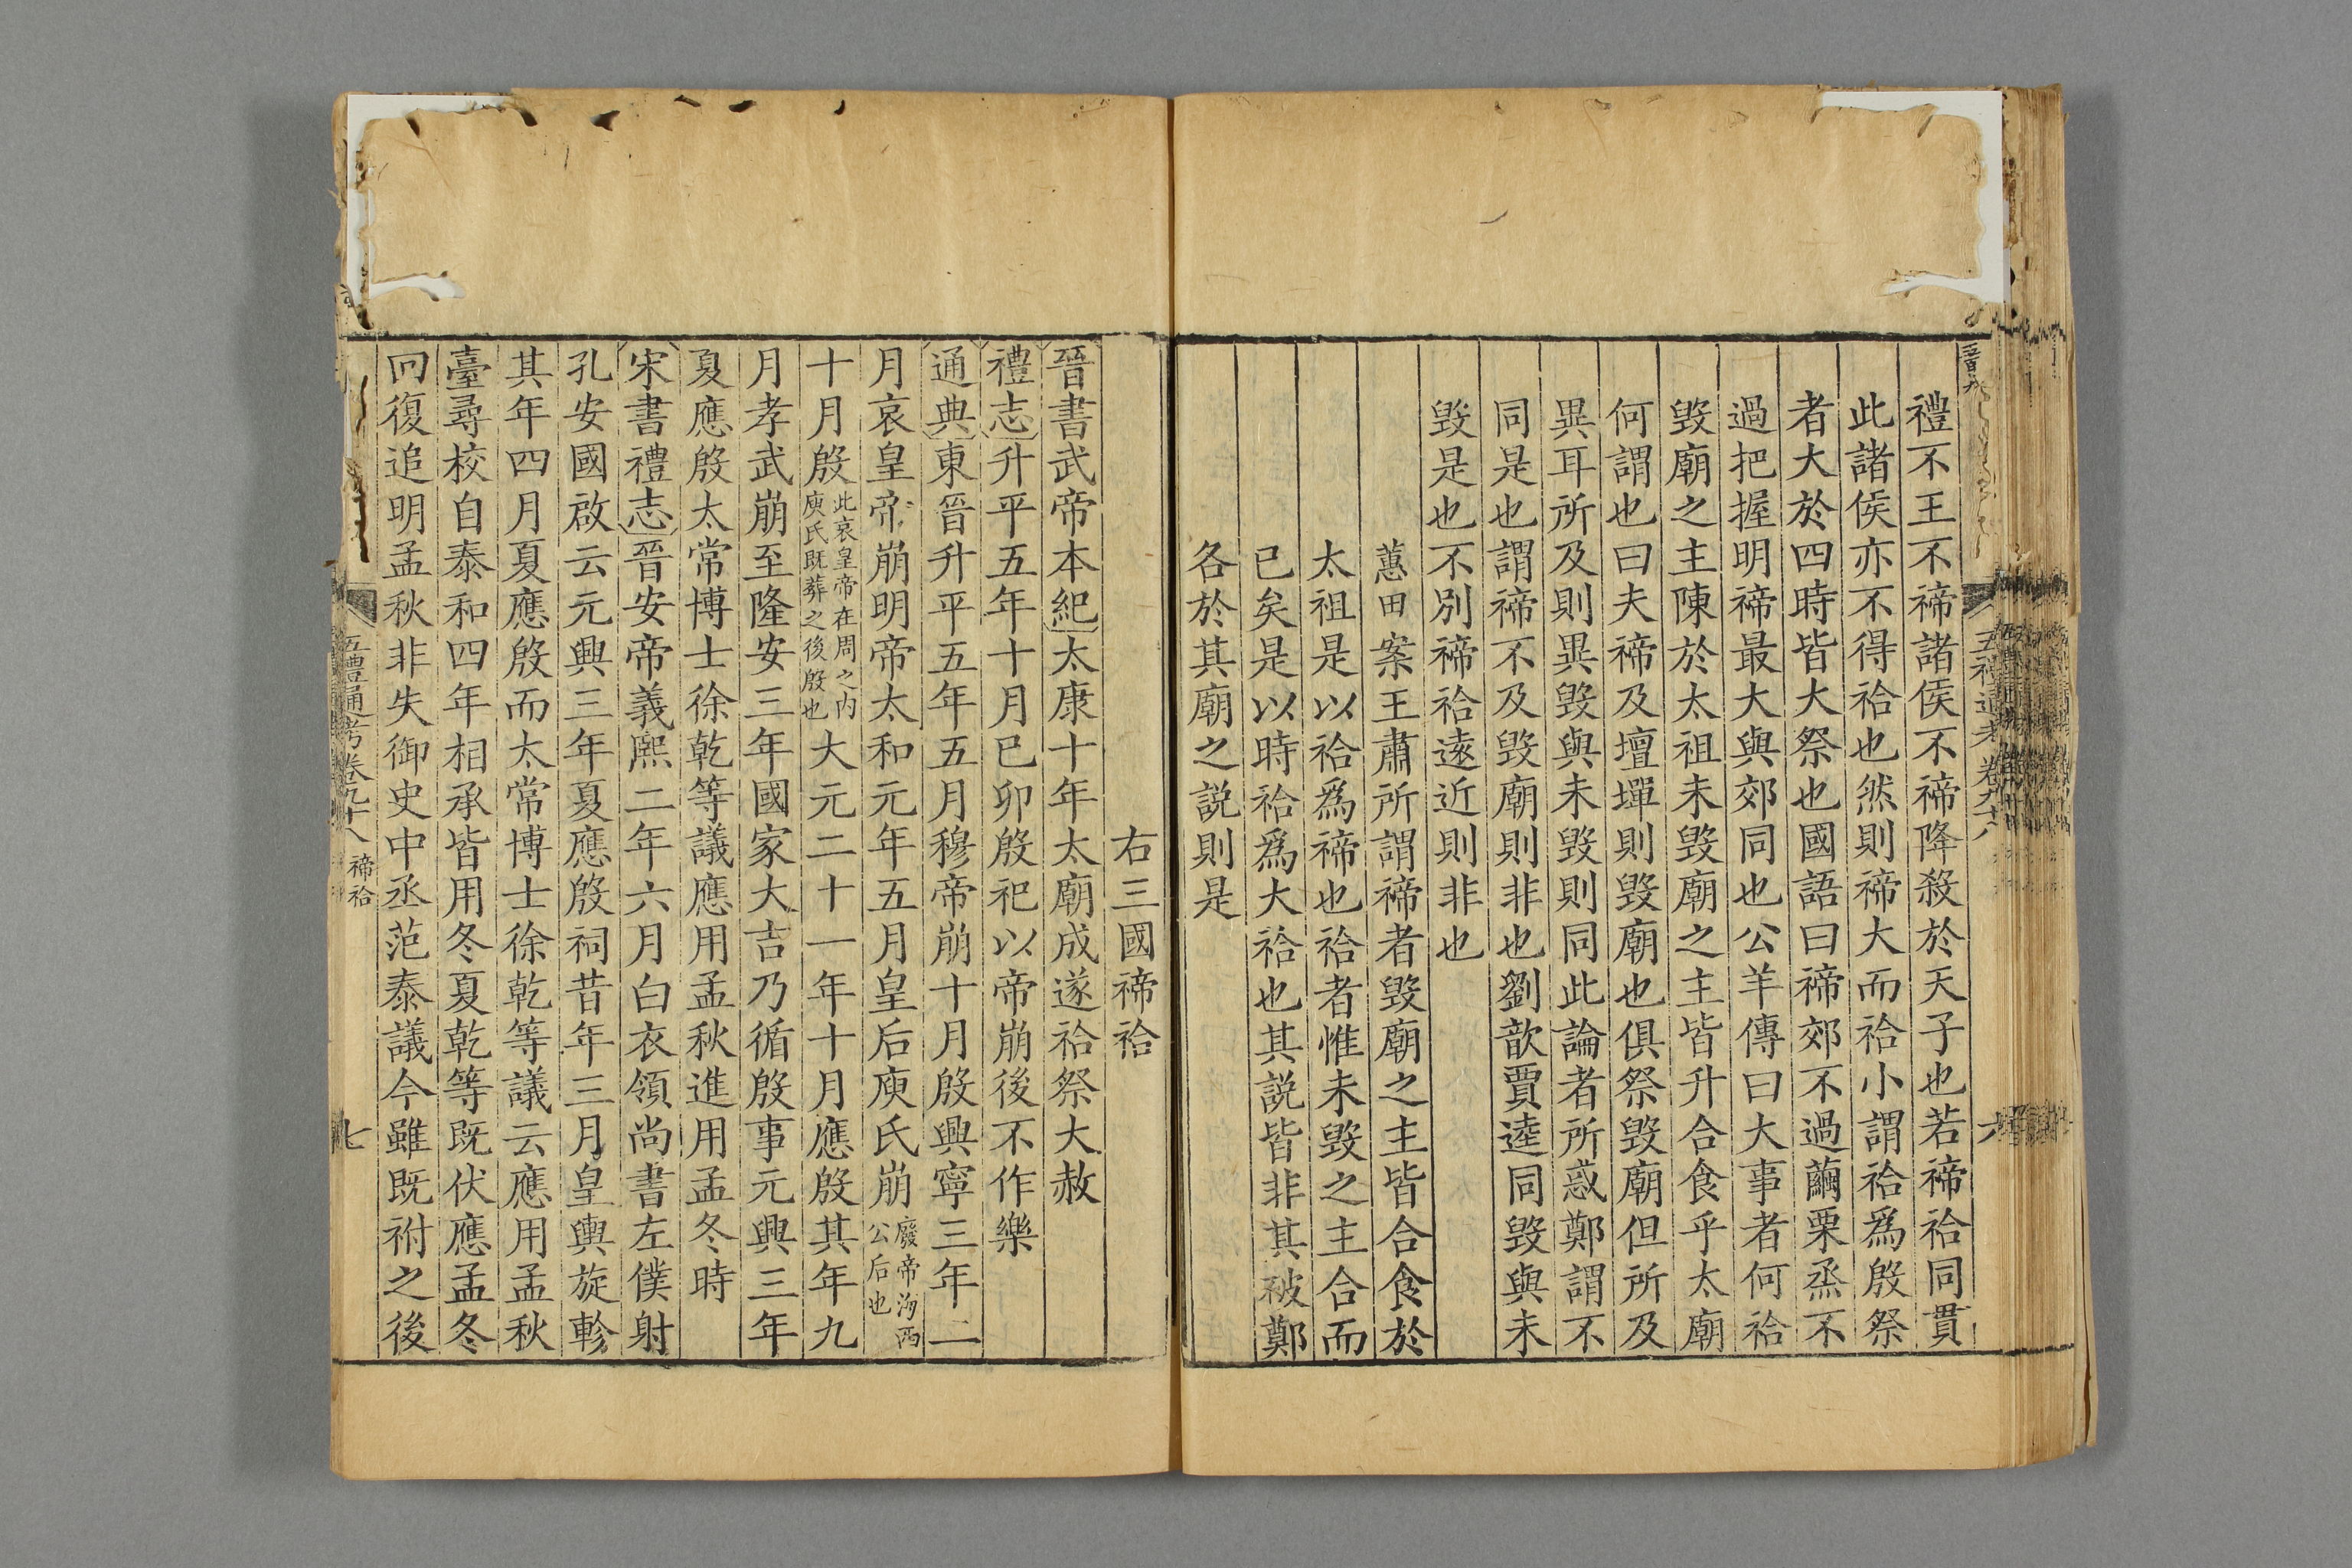 禮不王不禘諸侯不禘降殺於天子也若禘祫同貫
此諸侯亦不得祫也然則禘大而祫小謂祫爲殷祭
者大於四時皆大祭也國語曰禘郊不過繭栗烝不
過把握明禘最大與郊同也公羊傳曰大事者何祫
毀廟之主陳於太祖未毀廟之主皆升合食乎太廟
何謂也曰夫禘及壇墠則毀廟也俱祭毀廟但所及
異耳所及則異毀與未毀則同此論者所惑鄭謂不
同是也謂禘不及毀廟則非也劉歆賈逵同毀與未
毀是也不別禘祫遠近則非也
蕙田案王肅所謂禘者毀廟之主皆合食於
太祖是以祫爲禘也祫者惟未毀之主合而
已矣是以時祫爲大祫也其説皆非其破鄭
各於其廟之説則是
右三國禘祫
晉書武帝本紀太康十年太廟成遂祫祭大赦
禮志升平五年十月已卯殷祀以帝崩後不作樂
通典東晉升平五年五月穆帝崩十月殷興寧三年二
月哀皇帝崩明帝太和元年五月皇后庾氏崩廢帝海西公后也
十月殷此哀皇帝在周之內庾氏既葬之後殷也大元二十一年十月應殷其年九
月孝武崩至隆安三年國家大吉乃循殷事元興三年
夏應殷太常博士徐乾等議應用孟秋進用孟冬時
宋書禮志晉安帝義熙二年六月白衣領尚書左僕射
孔安國啟云元興三年夏應殷祠昔年三月皇輿旋軫
其年四月夏應殷而太常博士徐乾等議云應用孟秋
臺尋校自泰和四年相承皆用冬夏乾等既伏應孟冬
回復追明孟秋非失御史中丞范泰議今雖既祔之後
五禮通考卷九十八 禘祫 七